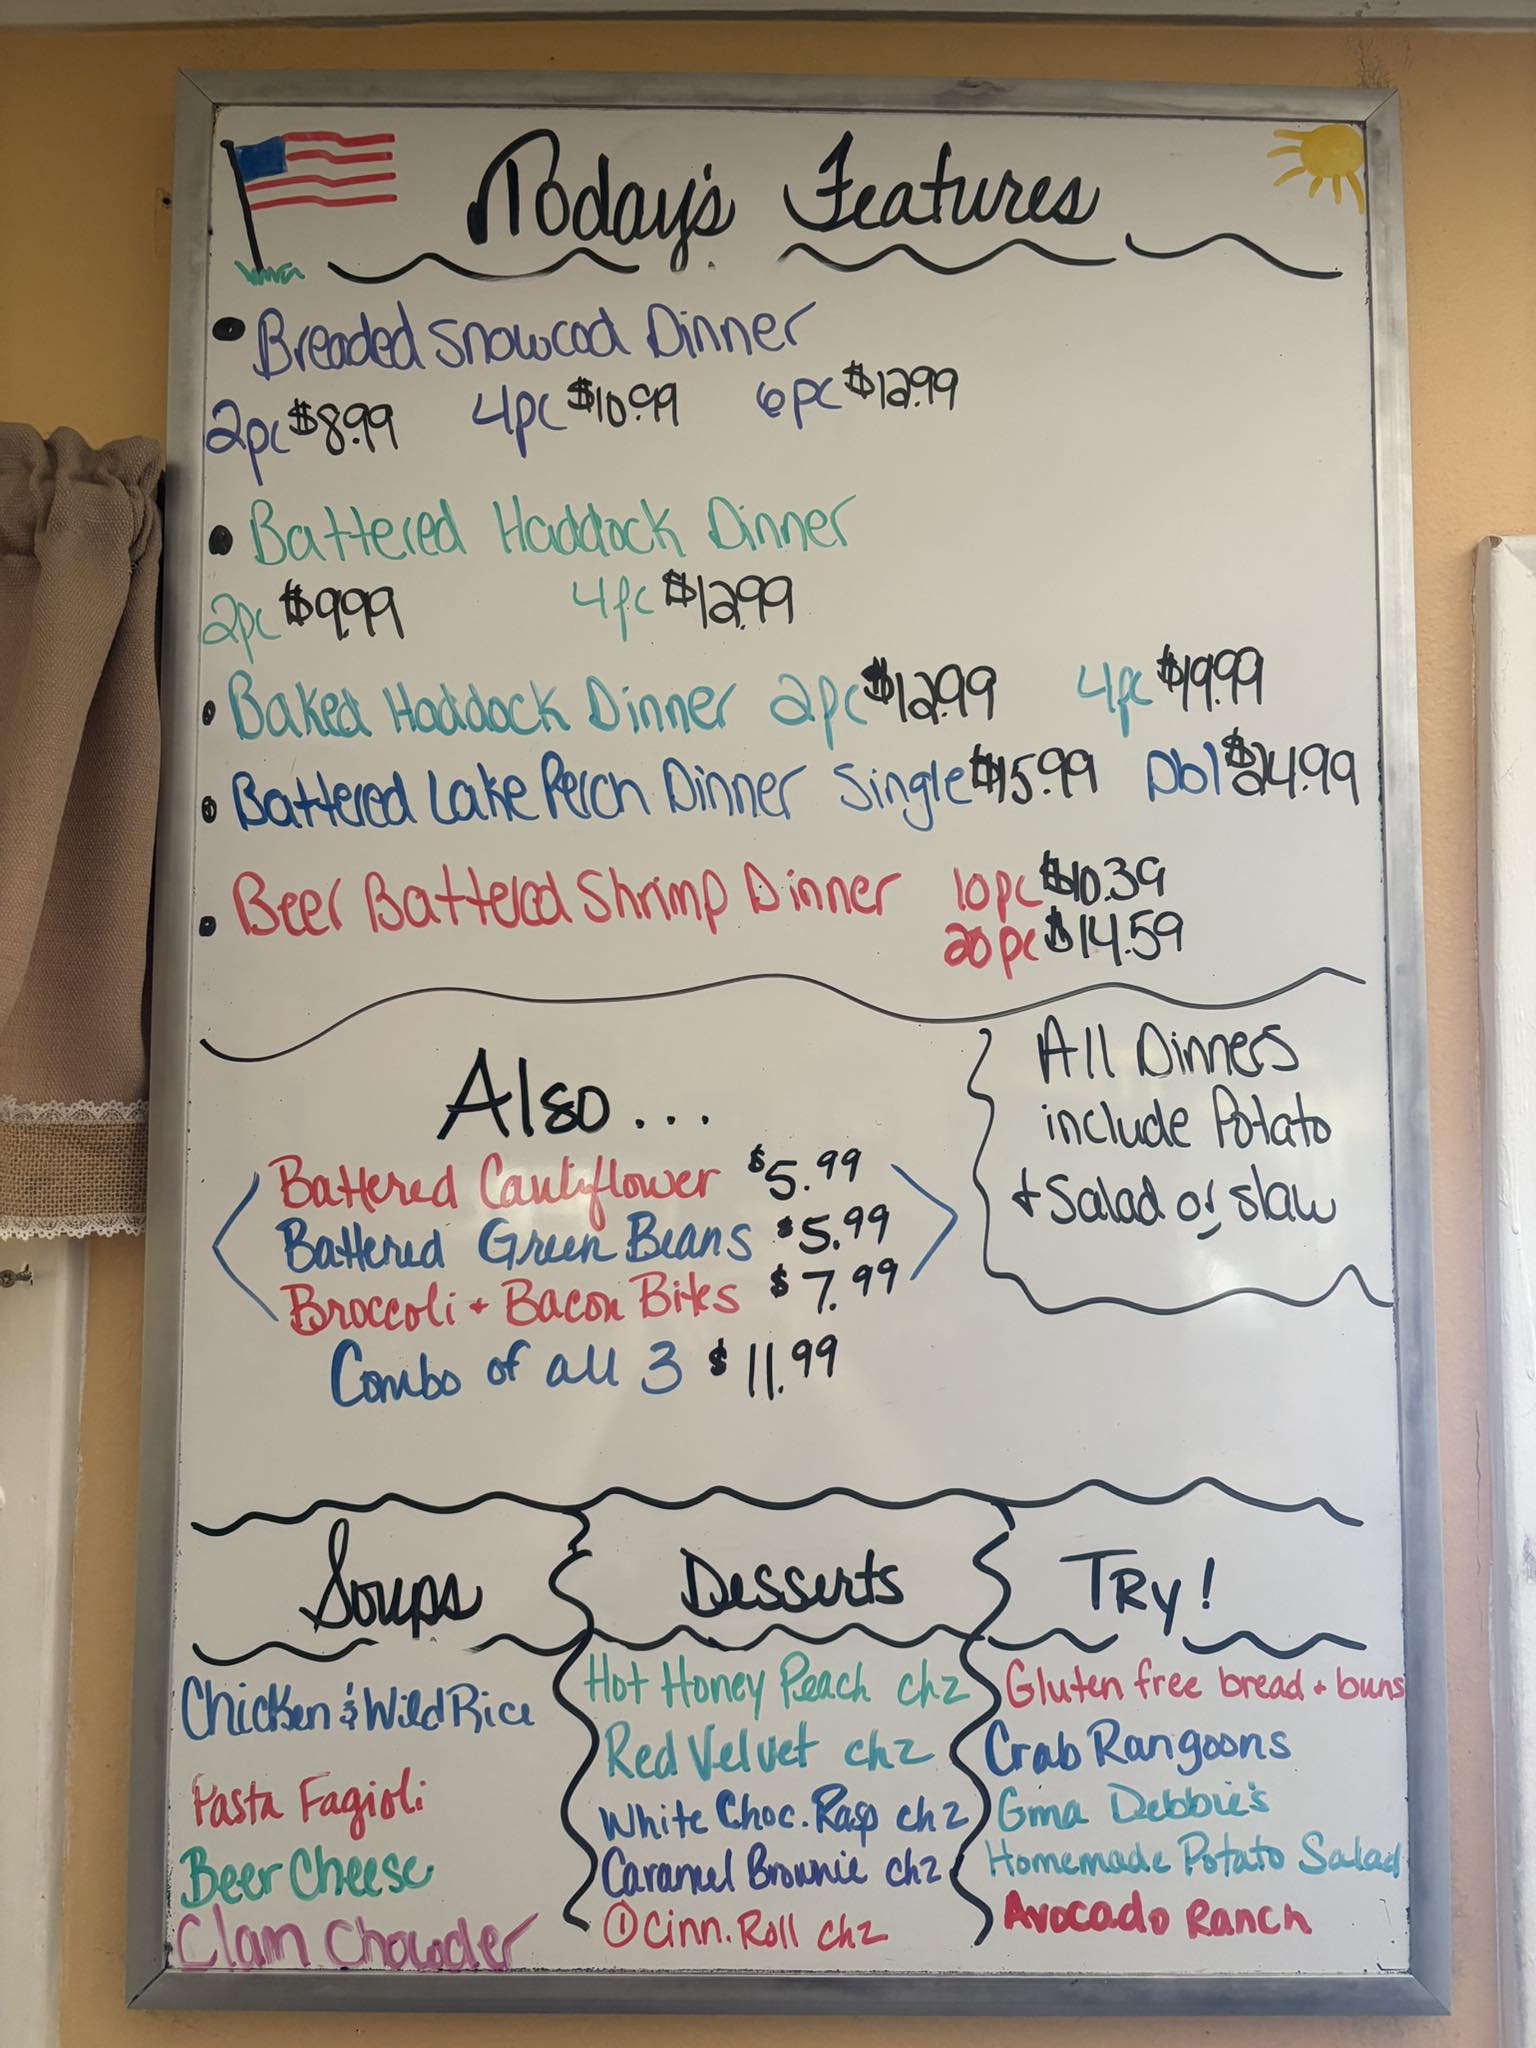 Today's Features
• Breaded Snowcod Dinner
2pc $8.99 4pc $10.99 6pc $12.99
• Battered Haddock Dinner
2pc $9.99 4pc $12.99
• Baked Haddock Dinner 2pc $12.99 4pc $19.99
• Battered Lake Perch Dinner Single $15.99 Dbl $24.99
• Beer Battered Shrimp Dinner 10pc $10.39
20pc $14.59
Also...
Battered Cauliflower $5.99
Battered Green Beans $5.99
Broccoli + Bacon Bites $7.99
Combo of all 3 $11.99
All Dinners
include Potato
+ Salad or slaw
Soups
Chicken & Wild Rice
Pasta Fagioli
Beer Cheese
Clam Chowder
Desserts
Hot Honey Peach chz
Red Velvet chz
White Choc. Rasp chz
Caramel Brownie chz
① Cinn. Roll chz
Try!
Gluten free bread + buns
Crab Rangoons
Gma Debbie's
Homemade Potato Salad
Avocado Ranch